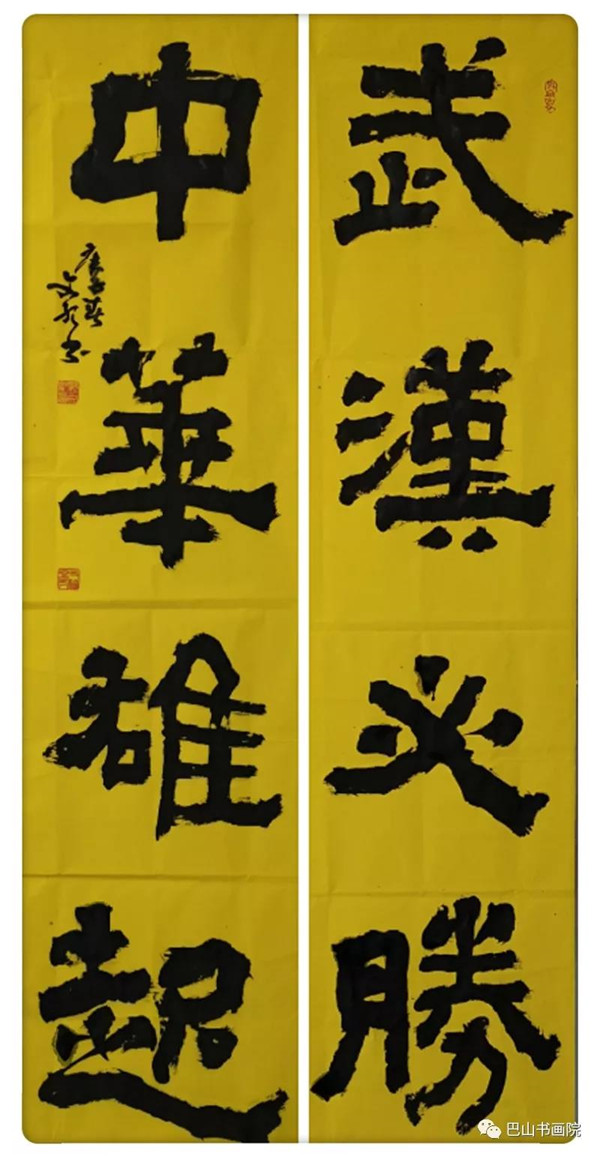 武漢必勝
中華雄起
庚子春
巴山书画院